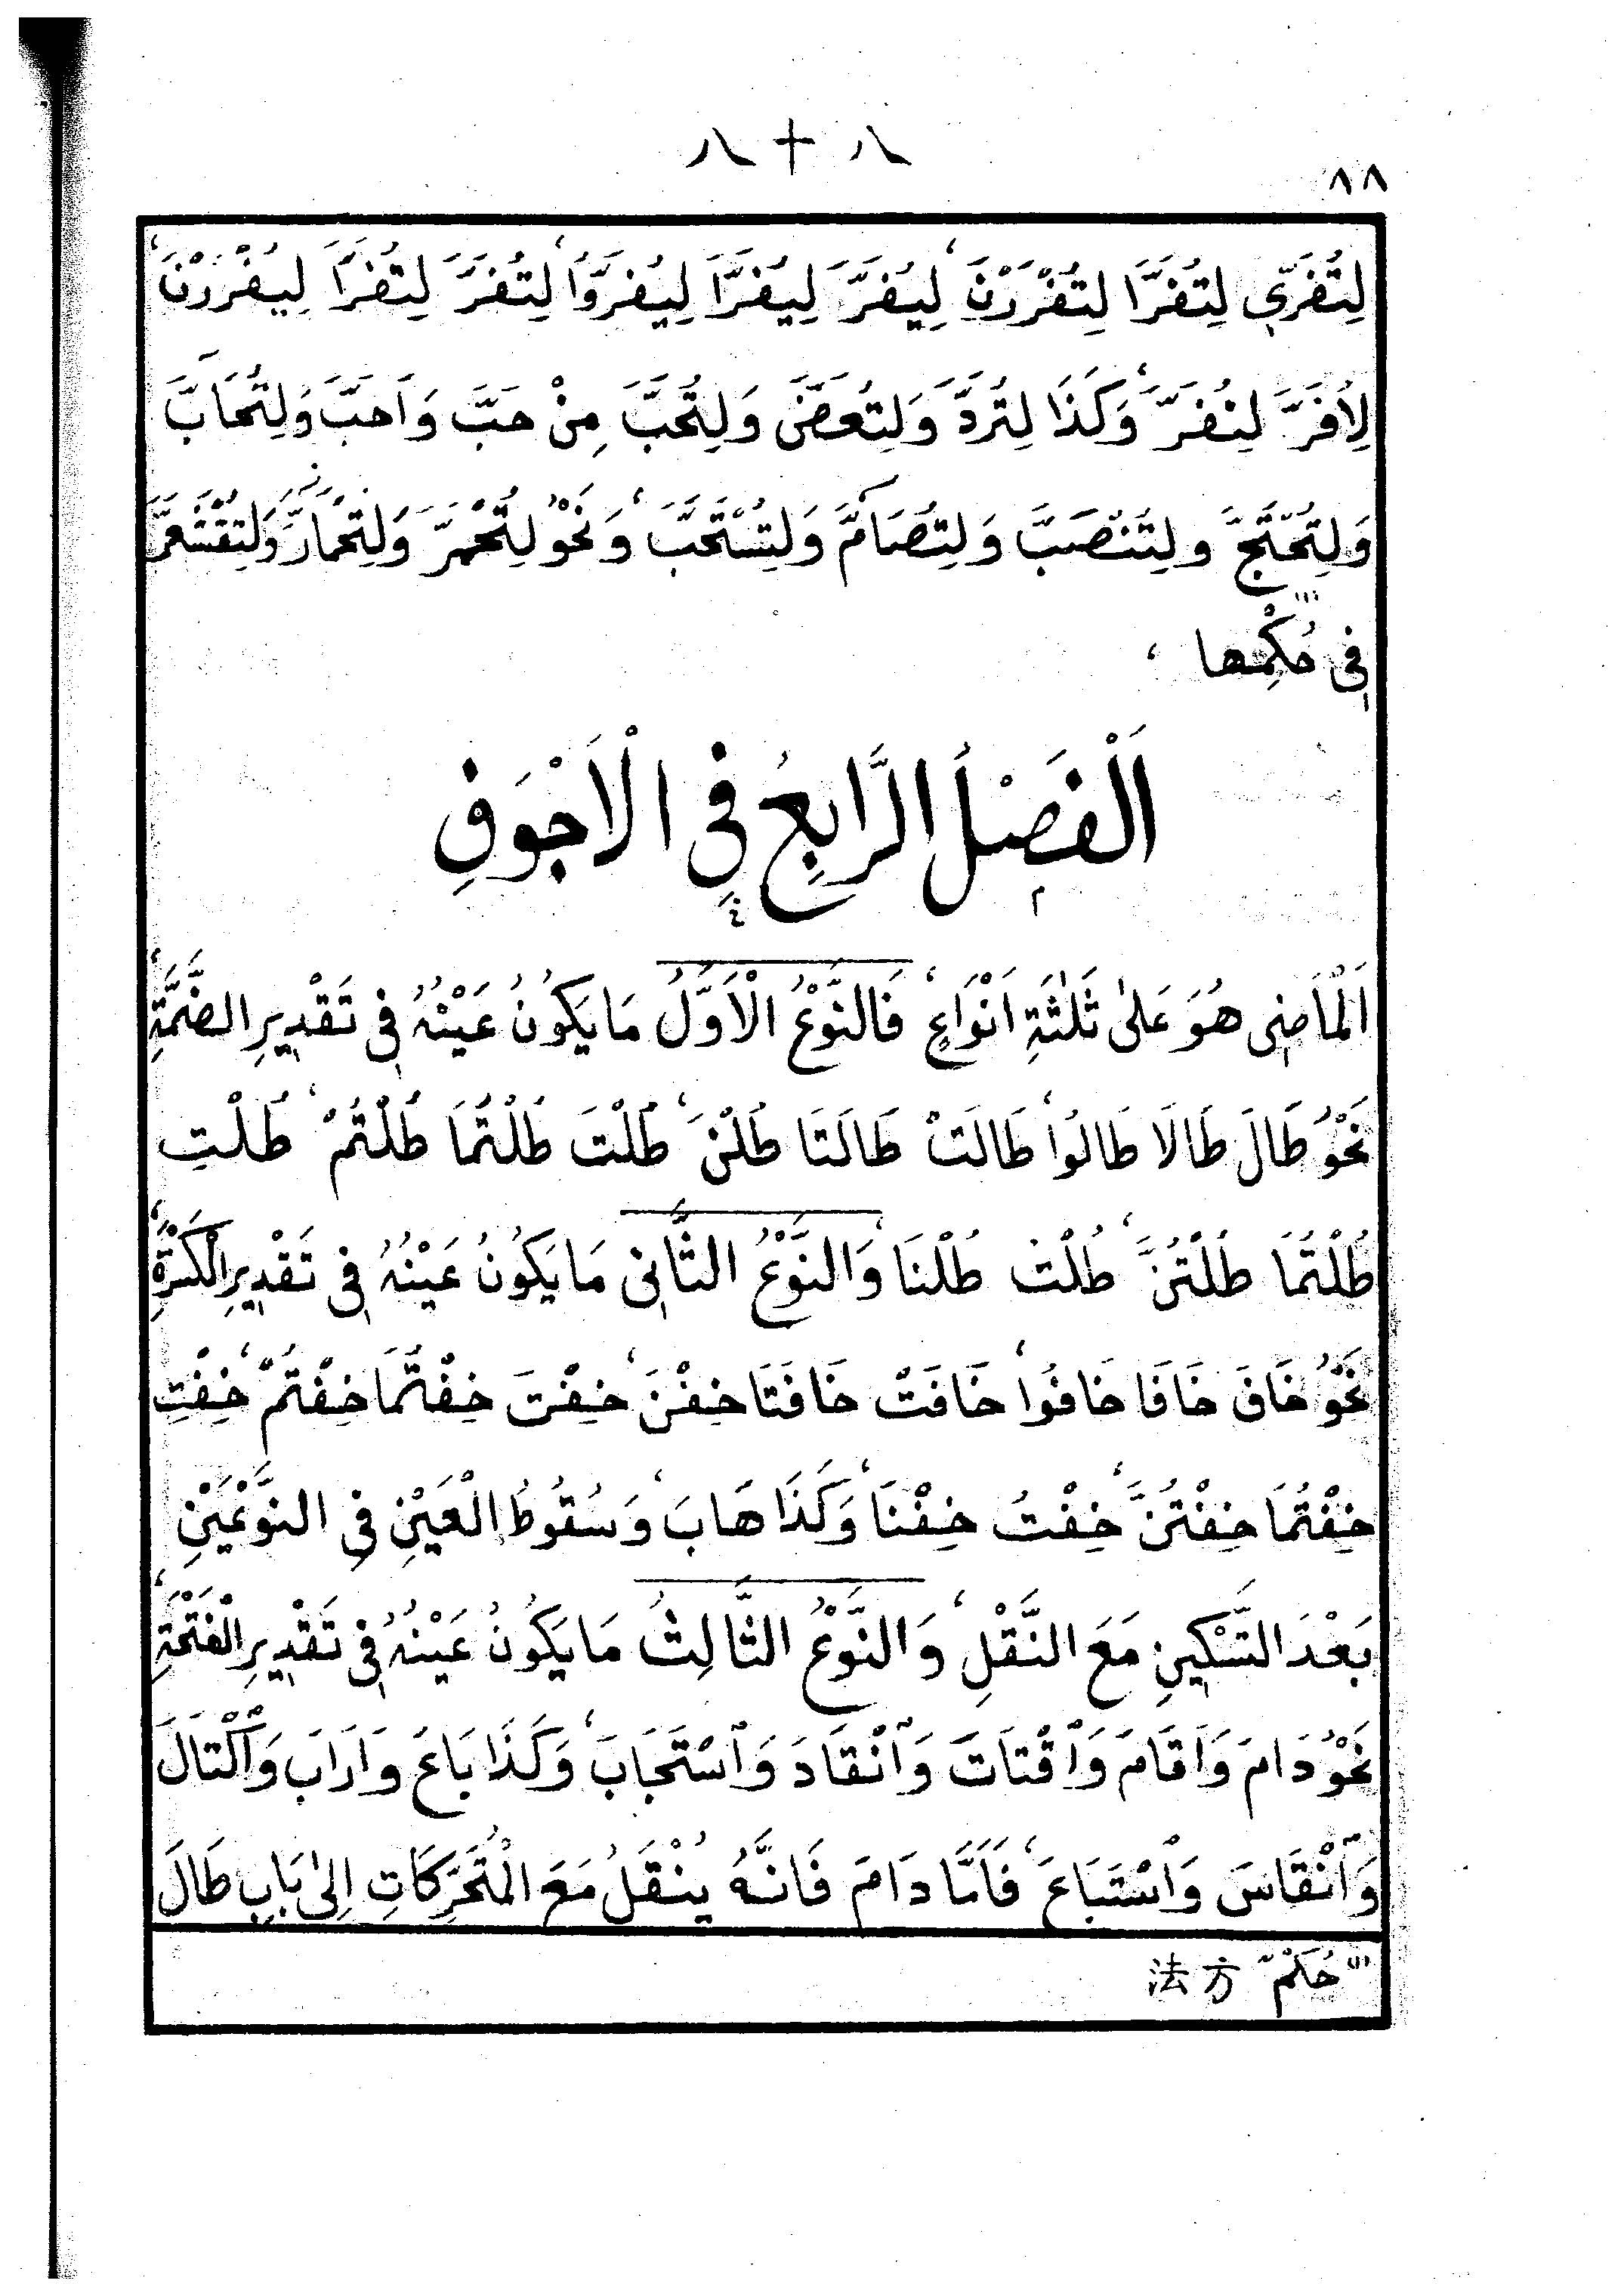 八十八
٨٨
لِتُفَرِّي لِتُفَرَّا لِتُفْرَرْنَ، لِيُفَرَّ لِيُفَرَّا لِيُفَرُّوا، لِتُفَرَّ لِتُفَرَّا لِيُفْرَرْنَ،
لِأُفَرَّ لِنُفَرَّ، وَكَذَا لِتُرَدَّ وَلِتُعَضَّ وَلِتُحَبَّ مِنْ حَبَّ وَاَحَبَّ وَلِتُحَابَّ
وَلِتُحْتَجَّ وَلِتُنْصَبَّ وَلِتُصَامَّ وَلِتُسْتَحَبَّ، وَنَحْوُ لِتُحْمَرَّ وَلِتُحْمَارَّ وَلِتُقْشَعَرَّ
فِي حُكْمِهَا ،
اَلْفَصْلُ الرَّابِعُ فِي الْاَجْوَفِ
م ٤
اَلْمَاضِي هُوَ عَلٰى ثَلٰثَةِ اَنْوَاعٍ، فَالنَّوْعُ الْاَوَّلُ مَا يَكُونُ عَيْنُهُ فِي تَقْدِيرِ الضَّمَّةِ،
نَحْوُ طَالَ طَالَا طَالُوا، طَالَتْ طَالَتَا طُلْنَ، طُلْتَ طُلْتُمَا طُلْتُمْ، طُلْتِ
طُلْتُمَا طُلْتُنَّ، طُلْتُ طُلْنَا، وَالنَّوْعُ الثَّانِي مَا يَكُونُ عَيْنُهُ فِي تَقْدِيرِ الْكَسْرَةِ،
نَحْوُ خَافَ خَافَا خَافُوا، خَافَتْ خَافَتَا خِفْنَ، خِفْتَ خِفْتُمَا خِفْتُمْ، خِفْتِ
خِفْتُمَا خِفْتُنَّ، خِفْتُ خِفْنَا، وَكَذَا هَابَ، وَسُقُوطُ الْعَيْنِ فِي النَّوْعَيْنِ
بَعْدَ التَّسْكِينِ مَعَ النَّقْلِ، وَالنَّوْعُ الثَّالِثُ مَا يَكُونُ عَيْنُهُ فِي تَقْدِيرِ الْفَتْحَةِ،
نَحْوُ دَامَ وَاَقَامَ وَٱقْتَاتَ وَٱنْقَادَ وَٱسْتَجَابَ، وَكَذَا بَاعَ وَاَرَابَ وَٱكْتَالَ
وَٱنْقَاسَ وَٱسْتَبَاعَ، فَاَمَّا دَامَ فَاِنَّهُ يُنْقَلُ مَعَ الْمُتَحَرِّكَاتِ اِلٰى بَابِ طَالَ
(١) حُكْمٌ 方法